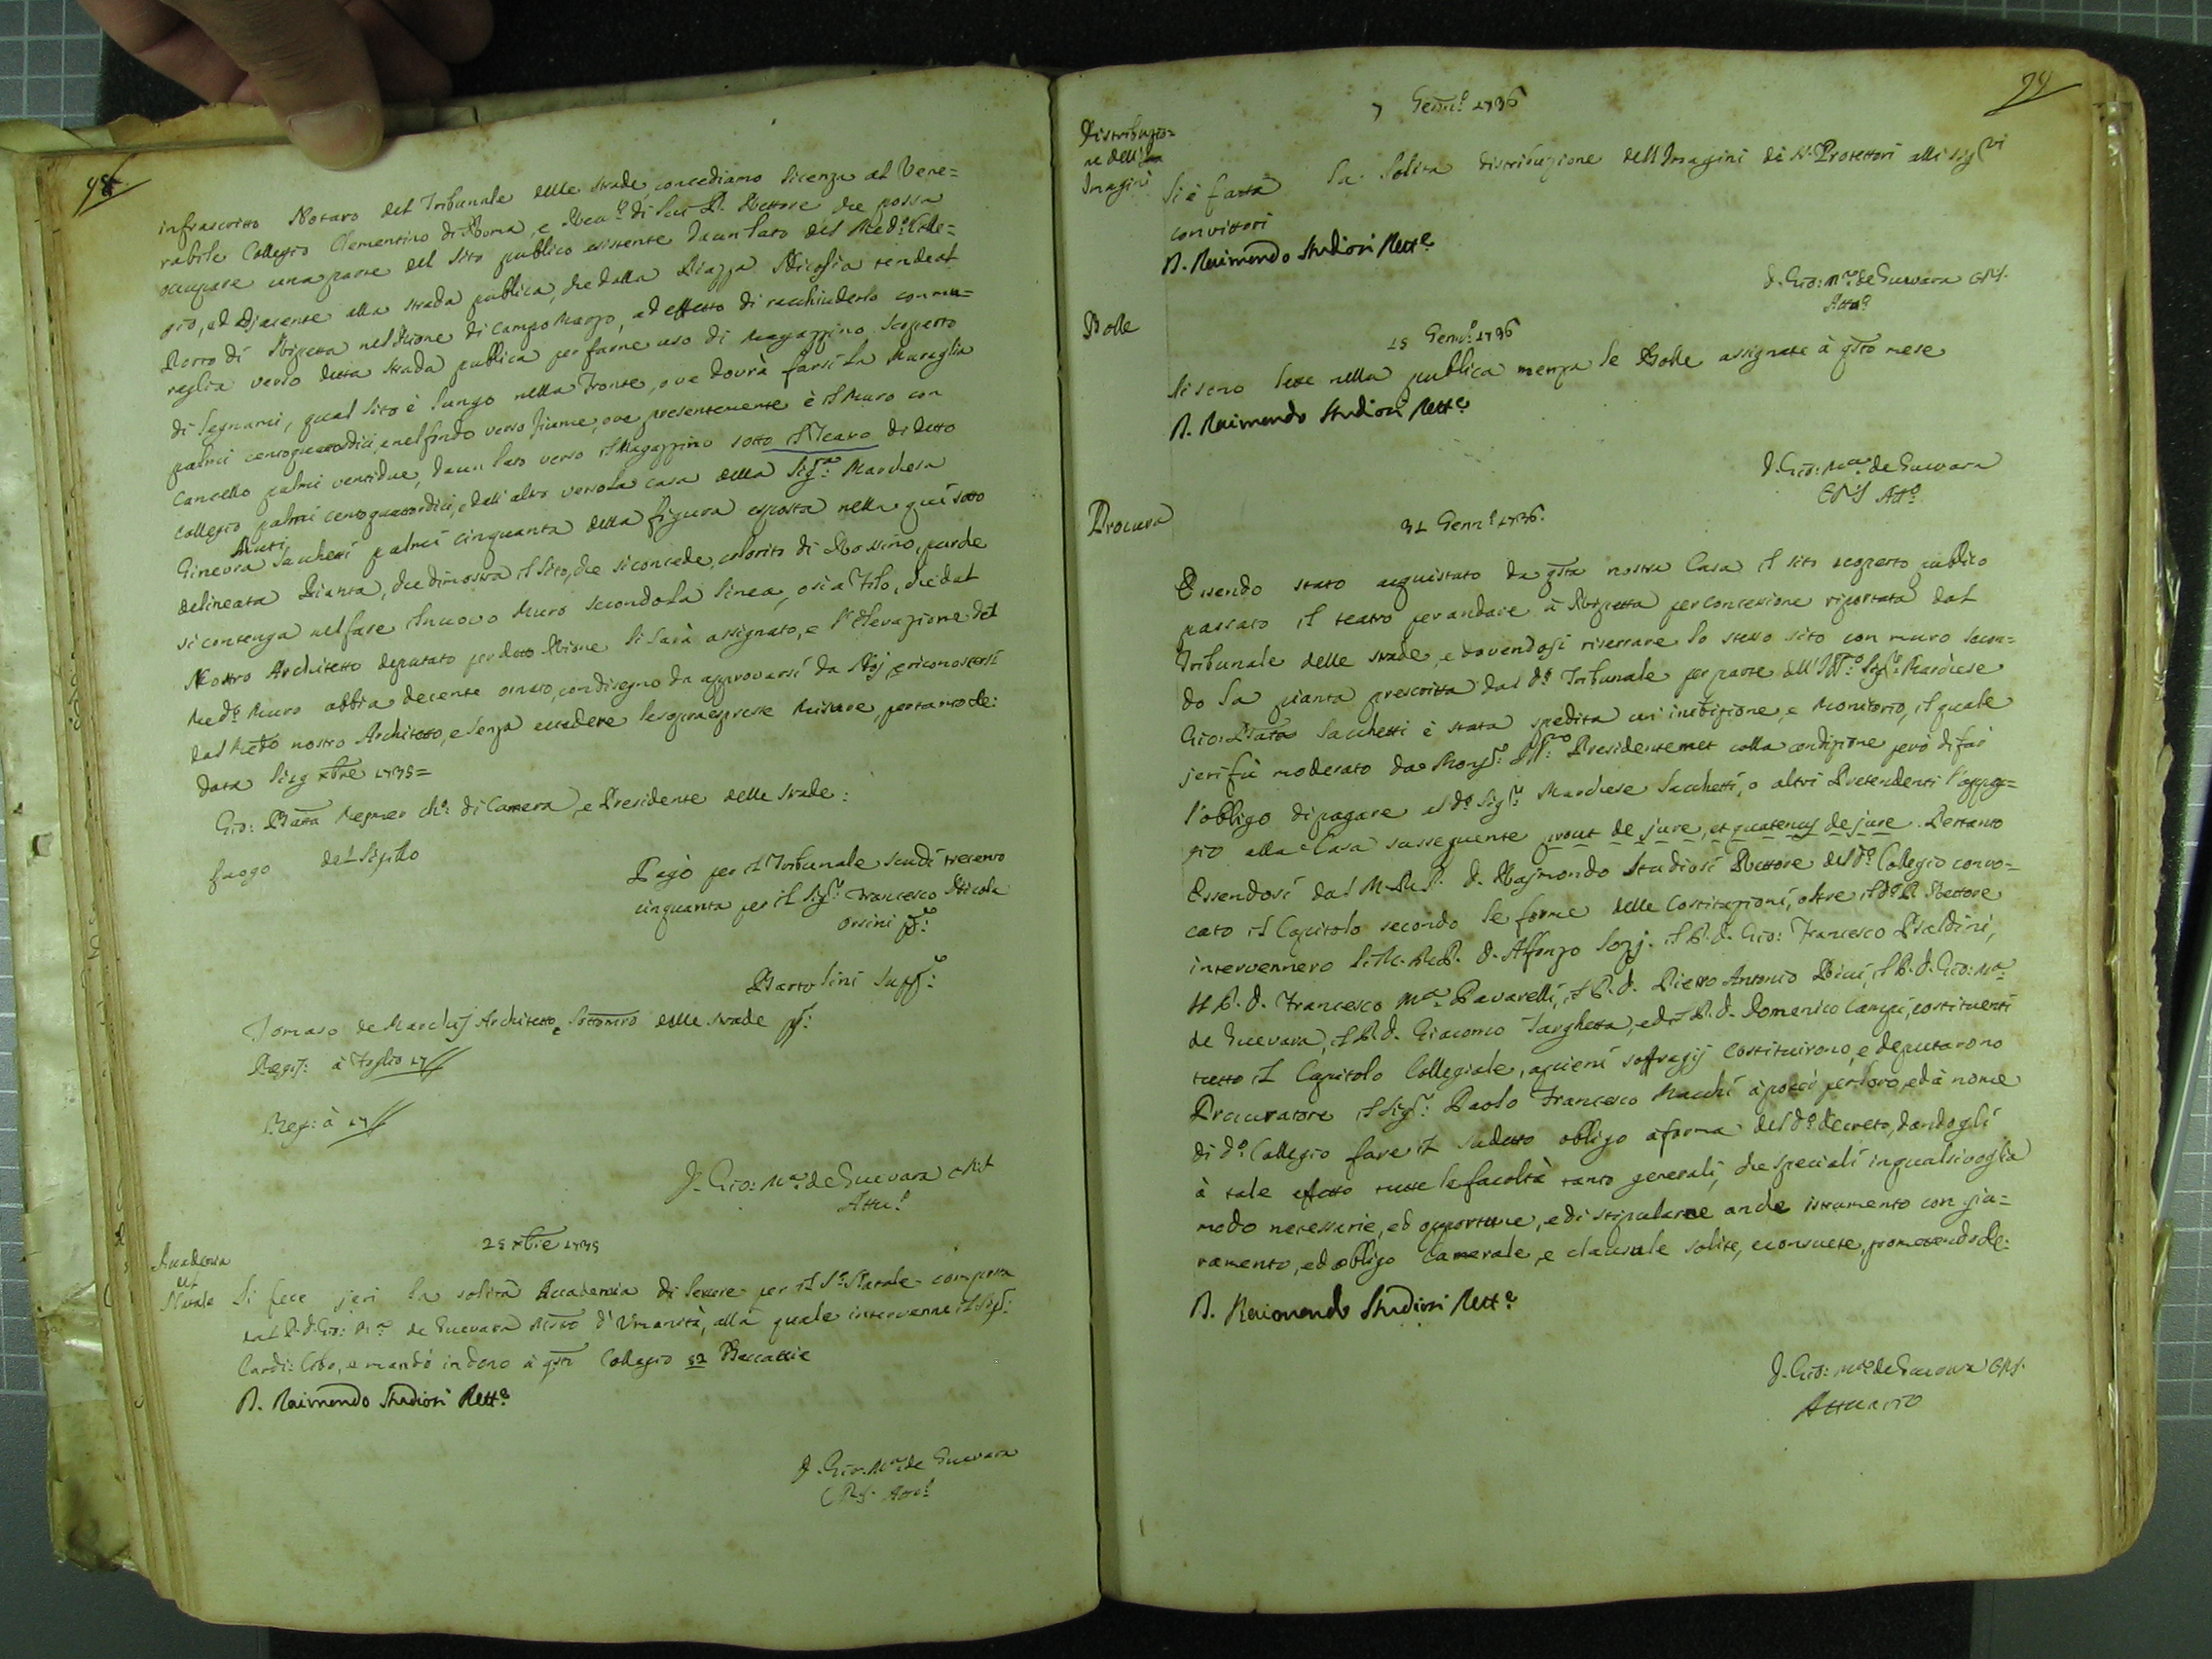 98
infrascritto Notaro del Tribunale delle strade concediamo licenza al Vene=
rabile Collegio Clementino di Roma, e Rev.o di lui P. Rettore che possa
occupare una parte del sito publico esistente da un lato del Med.o Colle=
gio, ed adjacente alla strada publica, che dalla Piazza Nicosia tende al
Porto di Ripetta nel Rione di Campo Marzo, ad effetto di racchiuderlo con mu=
raglia verso detta strada publica per farne uso di Magazzino scoperto
di legnami, qual sito è lungo nella Fronte, ove dovrà farsi la Muraglia
palmi centoquattordici, e nel fondo verso fiume, ove presentemente è il Muro con
Cancello palmi ventidue, da un lato verso il Magazzino sotto il Teatro di detto
Collegio palmi centoquattordici, e dall'altro verso la casa della Sig.ra Marchesa
Muti
Ginevra Sacchetti palmi cinquanta della figura esposta nella qui sotto
delineata Pianta, che dimostra il sito, che si concede, colorito di Rossino, purche
si contenga nel fare il nuovo Muro secondo la linea, o sia Filo, che dal
Nostro Architetto deputato per detto Rione li sarà assignato, e l'elevazione del
Med.o Muro abbia decente ornato, con disegno da approvarsi da Noj, e riconoscersi
dal sudetto nostro Architetto, e senza eccedere le sopraespresse Misure, pertanto de:
Data li 19 xbre 1735=
Gio: Batta Mesmer Ch.o di Camera, e Presidente delle strade:
Luogo del Sigillo
Pagò per il Tribunale scudi trecento
cinquanta per il Sig.r Francesco Nicola
Orsini
Bartolini
Tomaso de Marchis Architetto, e Sottomro delle strade
Regis: à Foglio 17
Reg: à 17
D. Gio: M.a de Guevara CRS
Attu.o
Accademia
del
Natale
25 xbre 1735
Si fece jeri la solita Accademia di lettere per il S.o Natale composta
dal P.D. Gio: M.a de Guevara Mro d'Umanità, alla quale intervenne il Sig.
Card: Cibo, e mandò in dono à qsto Collegio 52 Beccaccie
D. Raimondo Studiosi Rett.e
D. Gio. M.a de Guevara
CRS. Att.o
99
Distribuzio=
ne dell'
Imagini
7 Genn.o 1736
Si è fatta la solita distribuzione dell'Imagini di N. Protettori alli sig.ri
convittori
D. Raimondo Studiosi Rett.e
D. Gio: M.a de Guevara CRS.
Att.o
Bolle
15 Genn.o 1736
Si sono lette nella publica menza le Bolle assignate à qsto mese
D. Raimondo Studiosi Rett.e
D. Gio: M.a de Guevara
CRS Att.o
Procura
31 Genn.o 1736.
Essendo stato acquistato da qsta nostra Casa il sito scoperto publico
passato il teatro per andare à Ripetta per concessione riportata dal
Tribunale delle strade, e dovendosi riserrare lo stesso sito con muro secon=
do la pianta prescritta dal d.o Tribunale per parte dell'Ill.o Sig.r Marchese
Gio: Batta Sacchetti è stata spedita un'inibizione, e Monitorio, il quale
jeri fù moderato da Mons.r Ill.mo Presidente met colla condizione però di far
l'obligo di pagare al d.o Sig.r Marchese Sacchetti, o altri Pretendenti l'appog=
gio alla Casa susseguente prout de jure, et quatenus de jure. Pertanto
Essendosi dal M.R.P. D. Rajmondo Studiosi Rettore del d.o Collegio convo=
cato il Capitolo secondo le forme delle Costituzioni, oltre il d.o P. Rettore
intervennero li M.R.P. D. Alfonzo Sozj. il P.D. Gio: Francesco Baldini,
il P.D. Francesco M.a Pavarelli, il P.D. Pietro Antonio Ricci, il P.D. Gio: M.a
de Guevara, il P.D. Giacomo Targhetta, ed il P.D. Domenico Campi, costituenti
tutto il Capitolo Collegiale, a pieni soffragij costituirono, e deputarono
Procuratore il Sig.r Paolo Francesco Macchi à potere per loro, ed à nome
di d.o Collegio fare il sudetto obligo a forma del d.o decreto, dandogli
à tale effetto tutte le facoltà tanto generali, che speciali in qualsivoglia
modo necessarie, ed opportune, e di stipularne anche istrumento con giu=
ramento, ed obligo Camerale, e clausule solite, e consuete, promettendo de:
D. Raimondo Studiosi Rett.e
D. Gio: M.a de Guevara CRS.
Attuario